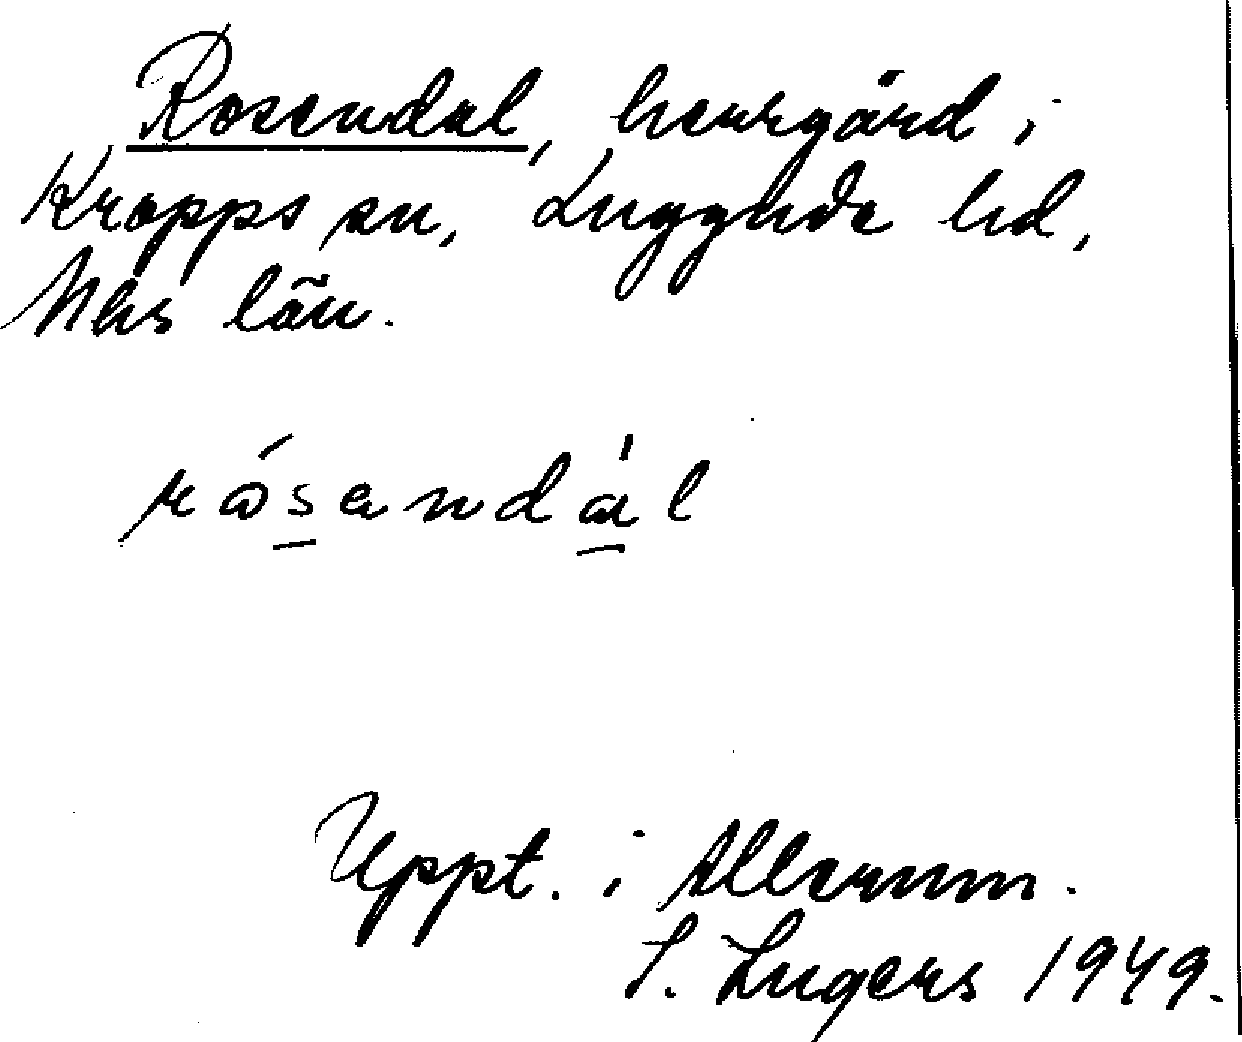 Rosendal, herrgård i
Kropps sn, Luggude hd,
Mhs län.
rósandál
Uppt. i Allerum.
S. Ingers 1949.